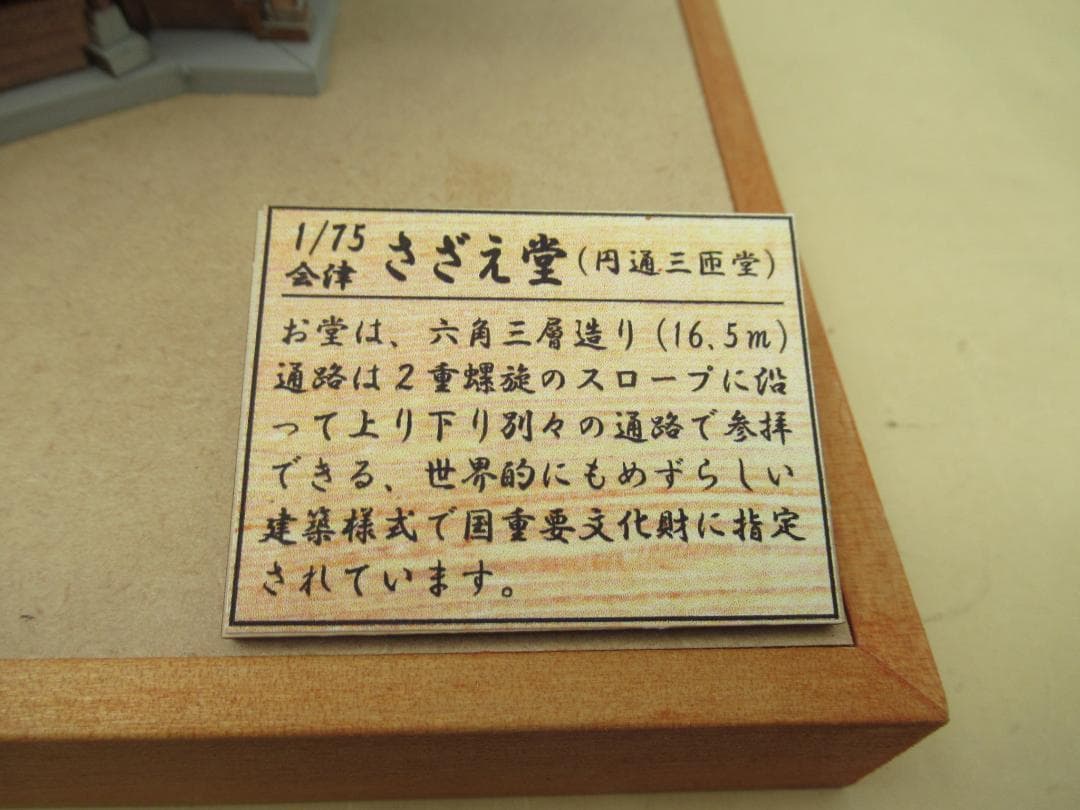 1/75
会津 さざえ堂 (円通三匝堂)
お堂は、六角三層造り(16.5m)
通路は2重螺旋のスロープに沿
って上り下り別々の通路で参拝
できる、世界的にもめずらしい
建築様式で国重要文化財に指定
されています。